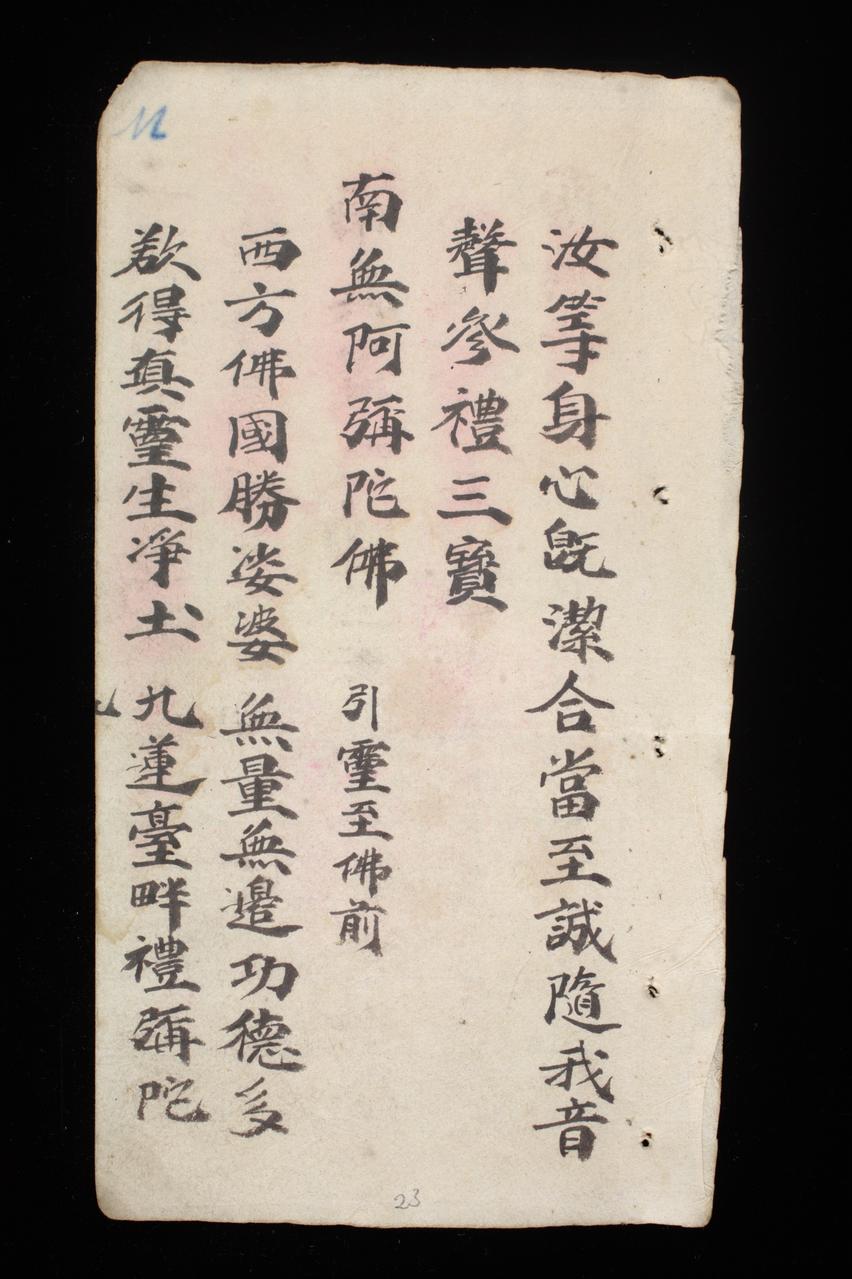 汝等身心既潔合當至誠隨我音
聲參禮三寶
南無阿彌陀佛 引靈至佛前
西方佛國勝娑婆 無量無邊功德多
欲得真靈生淨土 九蓮臺畔禮彌陀
23